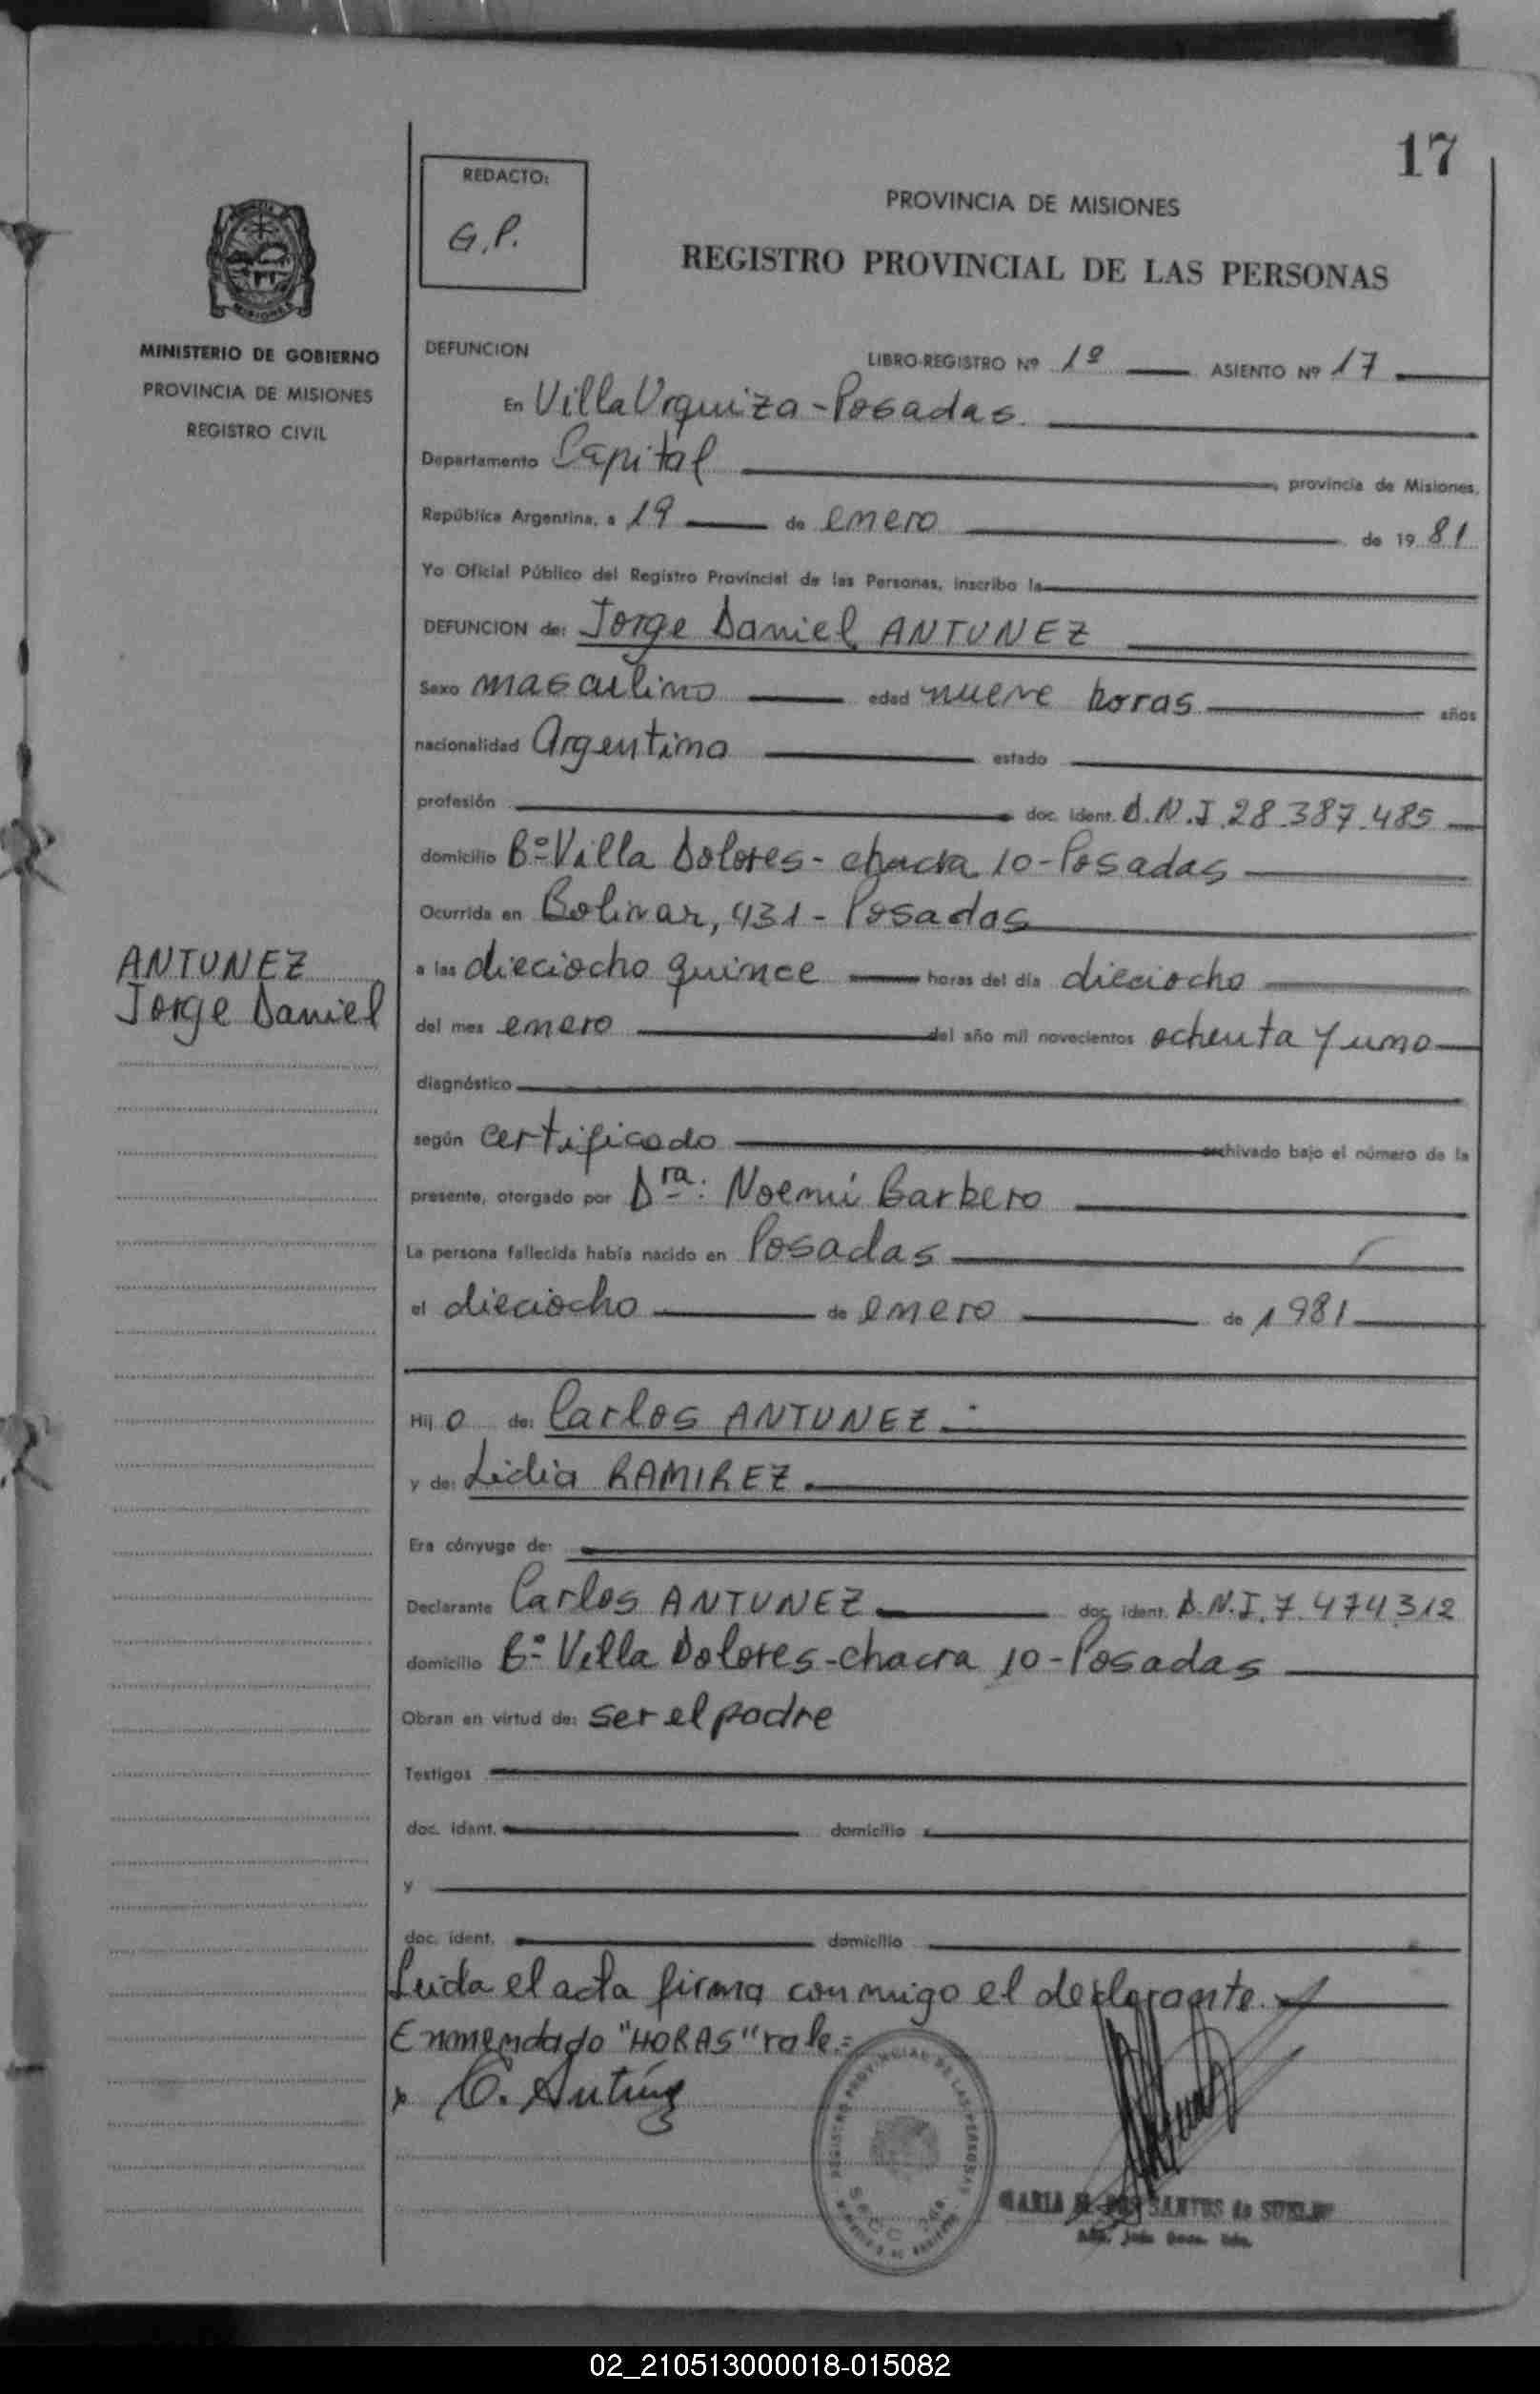 17
REDACTO:
G.P.
PROVINCIA DE MISIONES
REGISTRO PROVINCIAL DE LAS PERSONAS
MINISTERIO DE GOBIERNO
PROVINCIA DE MISIONES
REGISTRO CIVIL
DEFUNCION LIBRO-REGISTRO Nº 1º ASIENTO Nº 17
En Villa Urquiza - Posadas.
Departamento Capital, provincia de Misiones,
República Argentina, a 19 de enero de 1981
Yo Oficial Público del Registro Provincial de las Personas, inscribo la
DEFUNCION de: Jorge Daniel ANTUNEZ
Sexo masculino edad nueve horas años
nacionalidad Argentina estado
profesión doc. ident. D.N.I. 28.387.485
domicilio Bº Villa Dolores - chacra 10 - Posadas
Ocurrida en Bolivar, 431 - Posadas
a las dieciocho quince horas del día dieciocho
ANTUNEZ
Jorge Daniel
del mes enero del año mil novecientos ochenta y uno
diagnóstico
según certificado archivado bajo el número de la
presente, otorgado por Dra: Noemí Barbero
La persona fallecida había nacido en Posadas
el dieciocho de enero de 1981
Hijo de: Carlos ANTUNEZ
y de: Lidia RAMIREZ.
Era cónyuge de:
Declarante Carlos ANTUNEZ doc. ident. D.N.I. 7.474.312
domicilio Bº Villa Dolores - chacra 10 - Posadas
Obran en virtud de: ser el padre
Testigos
doc. ident. domicilio
y
doc. ident. domicilio
Leida el acta firma conmigo el declarante.
Enmendado "HORAS" vale.=
x C. Antúnez
REGISTRO PROVINCIAL DE LAS PERSONAS
MARIA DOS SANTOS de
02_210513000018-015082